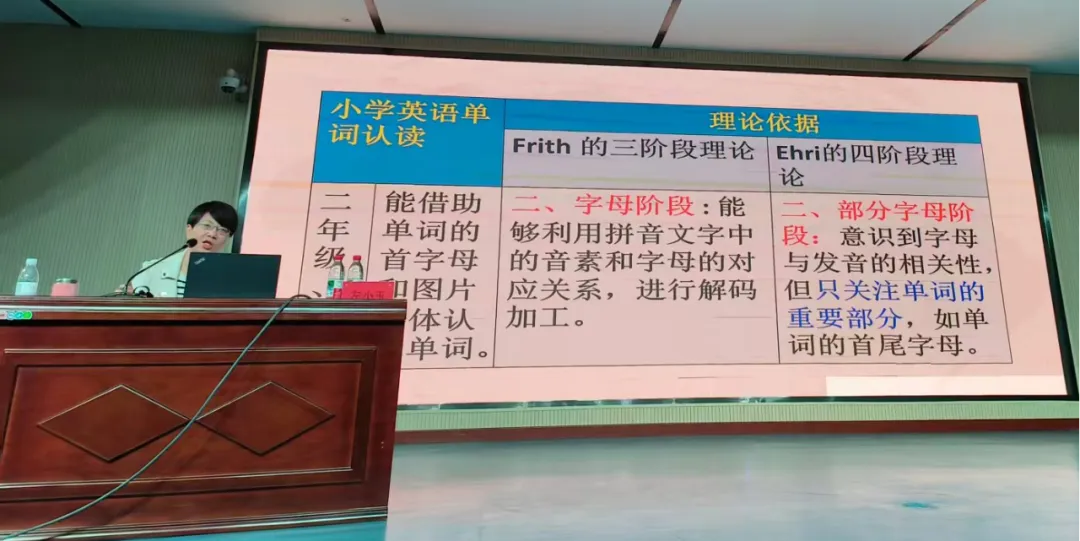 小学英语单
词认读
理论依据
Frith 的三阶段理论
Ehri的四阶段理
论
二
年
级
能借助
单词的
首字母
和图片
体认
单词。
二、字母阶段:能
够利用拼音文字中
的音素和字母的对
应关系，进行解码
加工。
二、部分字母阶
段：意识到字母
与发音的相关性，
但只关注单词的
重要部分，如单
词的首尾字母。